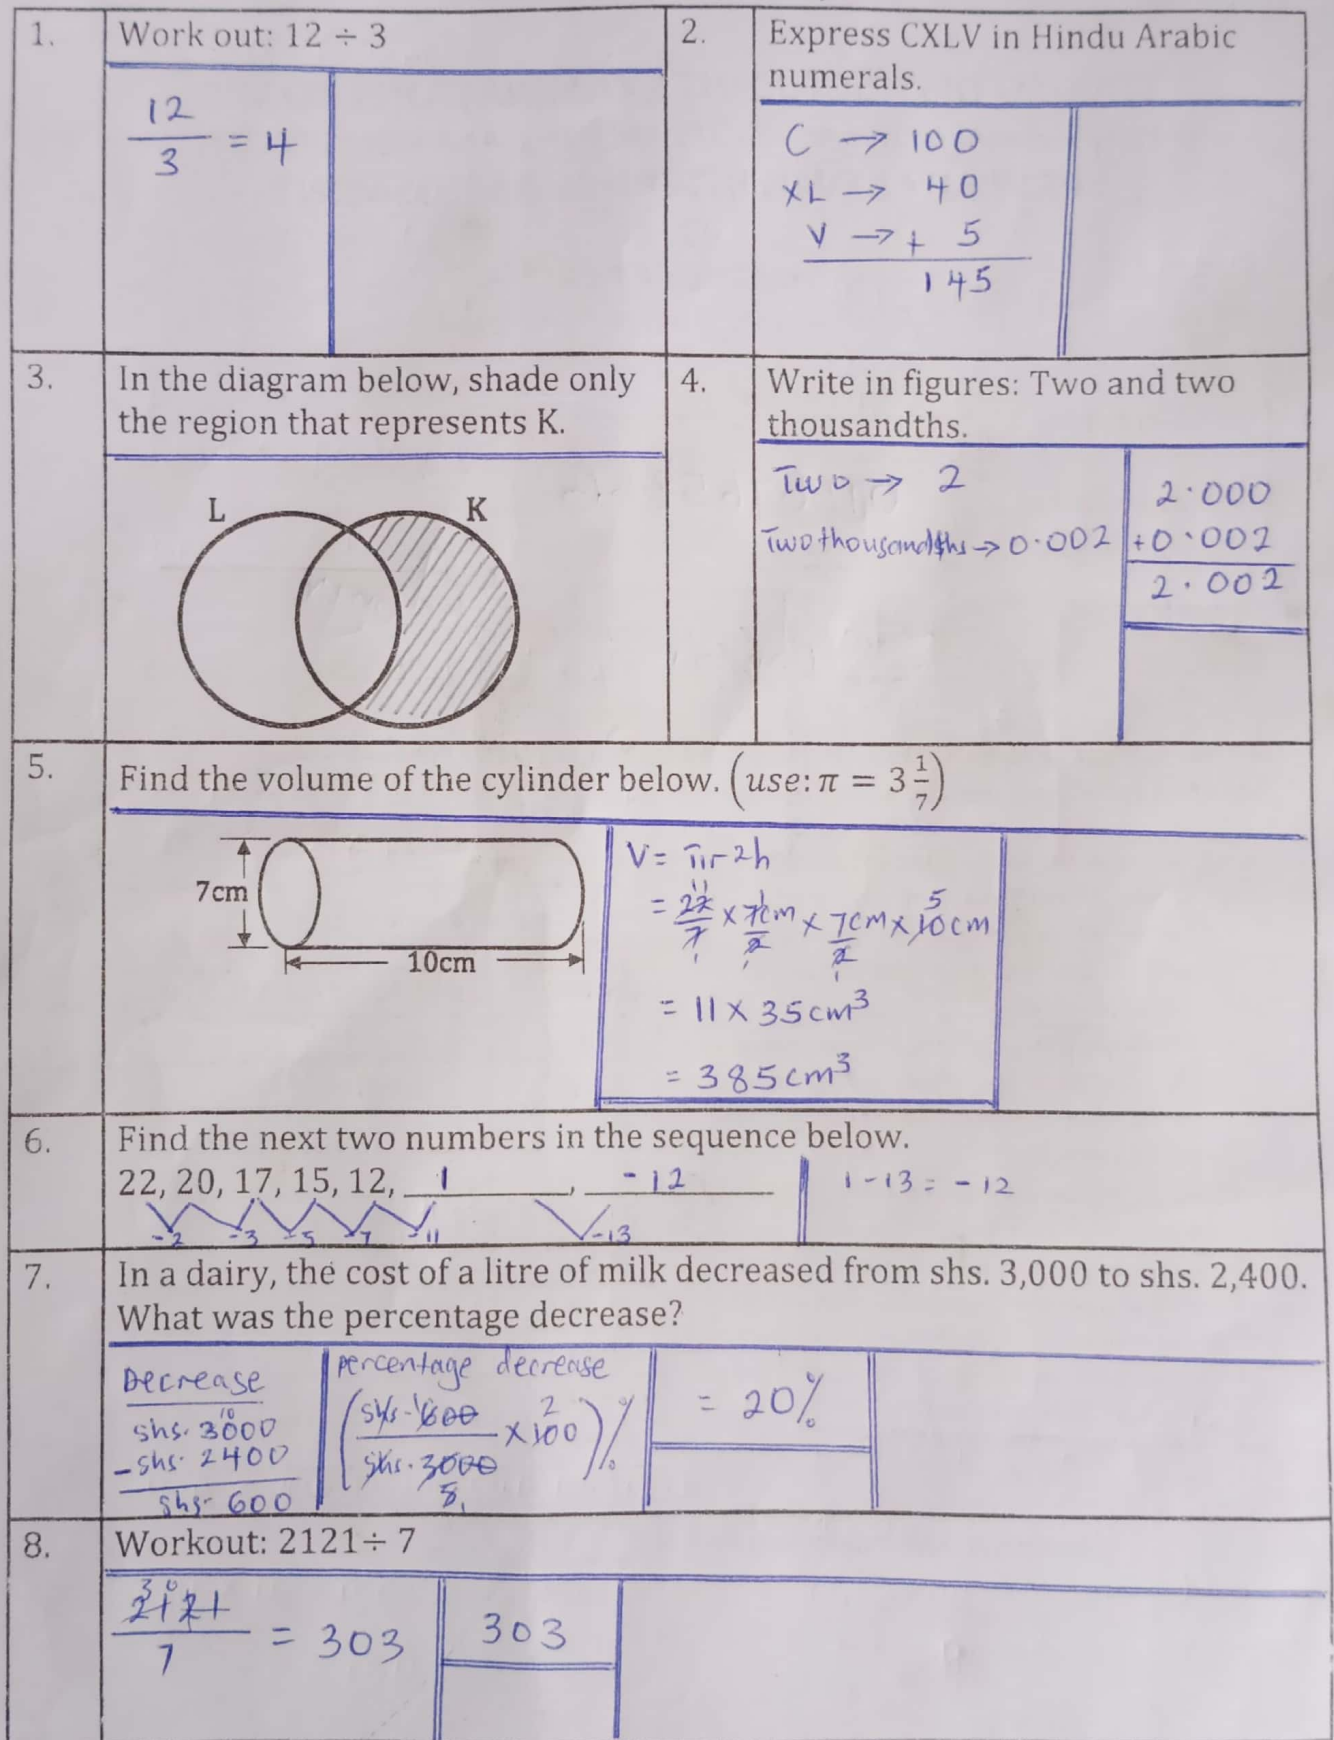 1.
Work out: 12 ÷ 3
12
3
= 4
2.
Express CXLV in Hindu Arabic
numerals.
C → 100
XL → 40
V → + 5
145
3.
In the diagram below, shade only
the region that represents K.
L
K
4.
Write in figures: Two and two
thousandths.
Two → 2
Two thousandths → 0.002
2.000
+0.002
2.002
5.
Find the volume of the cylinder below. (use: π = 3 1/7)
7cm
10cm
V = πr2h
= 22/7 × 7cm/2 × 7cm/2 × 10cm
11 1 5
1 1 1
= 11 × 35cm³
= 385cm³
6.
Find the next two numbers in the sequence below.
22, 20, 17, 15, 12, 1, -12
-2 -3 -5 -7 -11 -13
1 - 13 = -12
7.
In a dairy, the cost of a litre of milk decreased from shs. 3,000 to shs. 2,400.
What was the percentage decrease?
Decrease
10
shs. 3000
- shs. 2400
shs. 600
percentage decrease
(shs. 600/shs. 3000 × 100)%
2
= 20%
8.
Workout: 2121÷ 7
3 0
2121
7
= 303
303